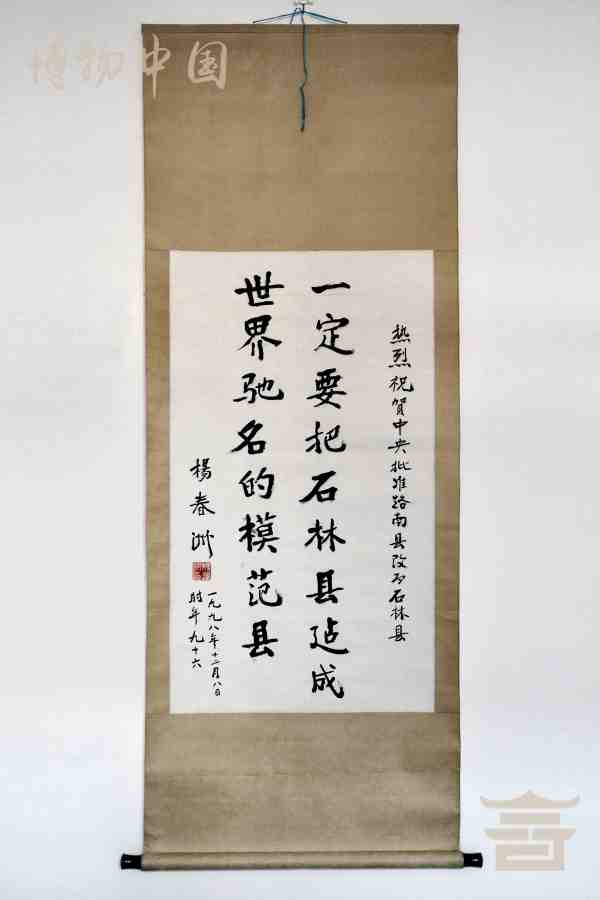 博物中国
热烈祝贺中央批准路南县改为石林县
一定要把石林县建成
世界驰名的模范县
楊春洲
一九九八年十二月八日
时年九十六